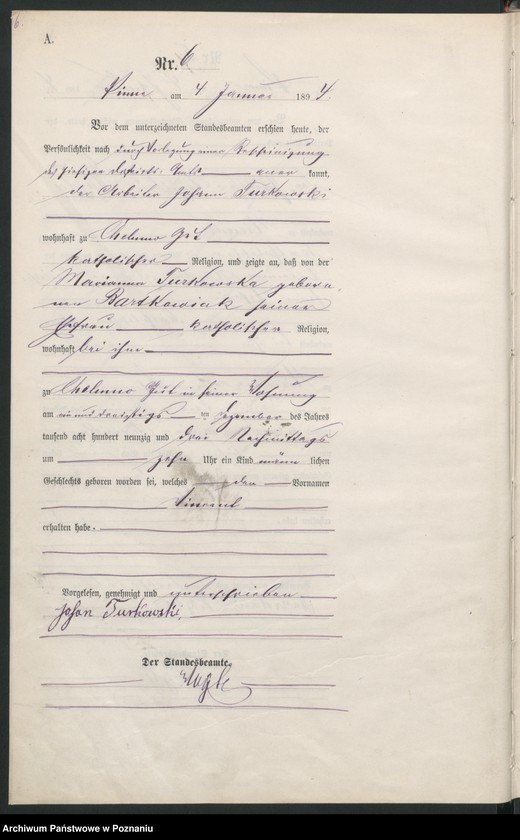 6.
A.
Nr. 6
Pinne am 4 Januar 1894.
Vor dem unterzeichneten Standesbeamten erschien heute, der
Persönlichkeit nach durch Vorlegung einer Bescheinigung
des hiesigen Distrikts-Amts kannt,
der Arbeiter Johann Turkowski
wohnhaft zu Chelmno Gut
katholischer Religion, und zeigte an, daß von der
Marianna Turkowska gebore-
nen Bartkowiak seiner
Ehefrau katholischer Religion,
wohnhaft bei ihm
zu Chelmno Gut in seiner Wohnung
am ein und dreißigsten Dezember des Jahres
tausend acht hundert neunzig und drei Nachmittags
um zehn Uhr ein Kind männlichen
Geschlechts geboren worden sei, welches den Vornamen
Vincent
erhalten habe.
Vorgelesen, genehmigt und unterschrieben
Johan Turkowski,
Der Standesbeamte.
Archiwum Państwowe w Poznaniu